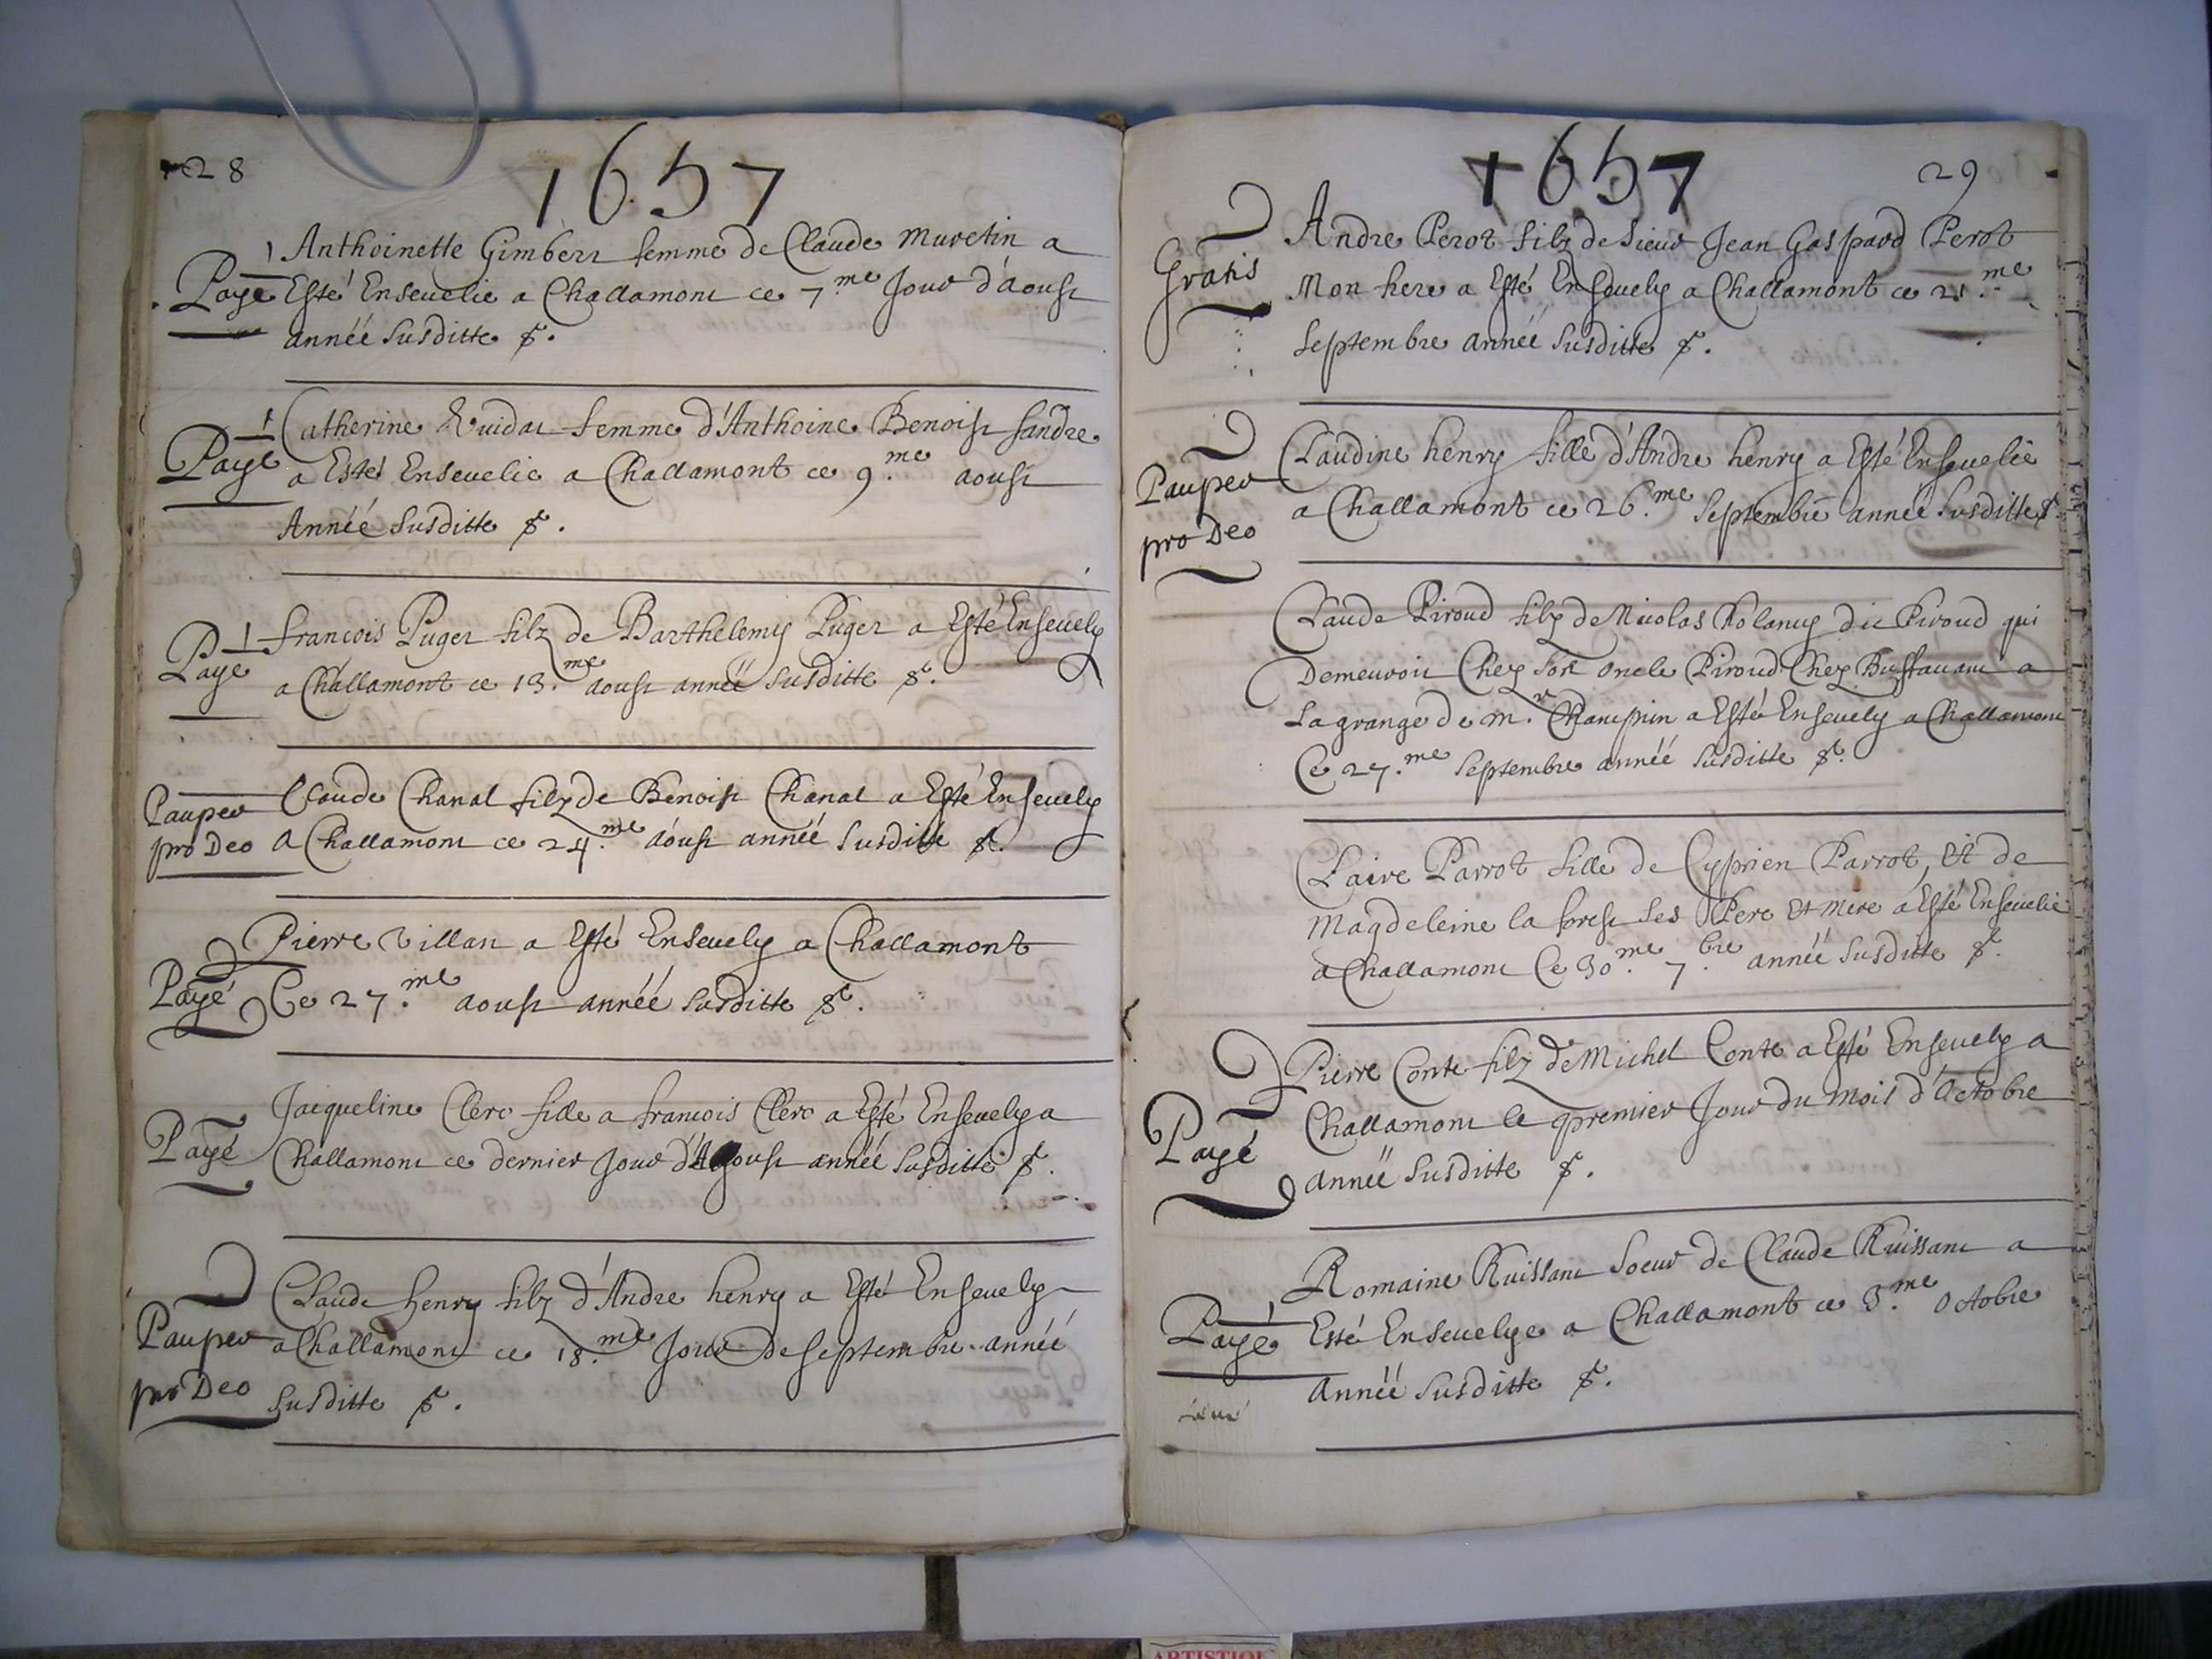 28
1657
Anthoinette Gimbert femme de Claude Muretin a
Payé Esté Enseuelie a Challamont ce 7.me Jour d'aoust
année Susditte &.
Catherine Vuidat femme d'Anthoine Benoist fandre
Payé a Esté Enseuelie a Challamont ce 9.me aoust
Année Susditte &.
francois Puget filz de Barthelemy Puget a Esté Enseuely
Payé a Challamont ce 13.me aoust année Susditte &.
Pauper Claude Chanal filz de Benoist Chanal a Esté Enseuely
pro Deo a Challamont ce 24.me aoust année Susditte &.
Pierre Villan a Esté Enseuely a Challamont
Payé Ce 27.me aoust année Susditte &.
Jacqueline Clerc fille a francois Clerc a Esté Enseuely a
Payé Challamont ce dernier Jour d'Aoust année Susditte &.
Claude henry filz d'Andre henry a Esté Enseuely
Pauper a Challamont ce 18.me Jour de Septembre année
pro Deo Susditte &.
1657
29
Andre Perot filz de Sieur Jean Gaspard Perot
Gratis Mon here a Esté Enseuely a Challamont ce 21.me
Septembre année Susditte &.
Claudine henry fille d'Andre henry a Esté Enseuelie
Pauper a Challamont ce 26.me Septembre année Susditte &.
pro Deo
Claude Piroud filz de Nicolas dit Piroud qui
Demeuroit Chez Son oncle Piroud Chez Buffauant a
La grange de m.r Champin a Esté Enseuely a Challamont
Ce 27.me Septembre année Susditte &.
Claire Parrot fille de Cyprien Parrot, Et de
Magdeleine la forest Ses Pere Et Mere a Esté Enseuelie
a Challamont Ce 30.me 7.bre année Susditte &.
Pierre Conte filz de Michel Conte a Esté Enseuely a
Payé Challamont le premier Jour du Mois d'Octobre
année Susditte &.
Romaine Ruissant Soeur de Claude Ruissant a
Payé Esté Enseuelye a Challamont ce 3.me Octobre
Année Susditte &.
ARTISTIQUE